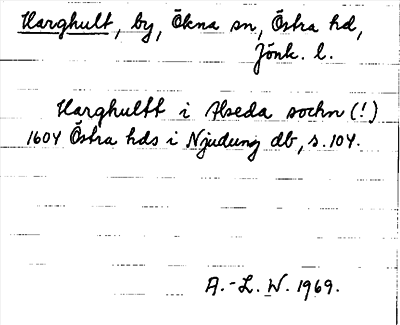 Harghult, by, Ökna sn, Östra hd,
Jönk. l.
Harghultt i Alseda sochn (!)
1604 Östra hds i Njudung db, s. 104.
A.-L. W. 1969.